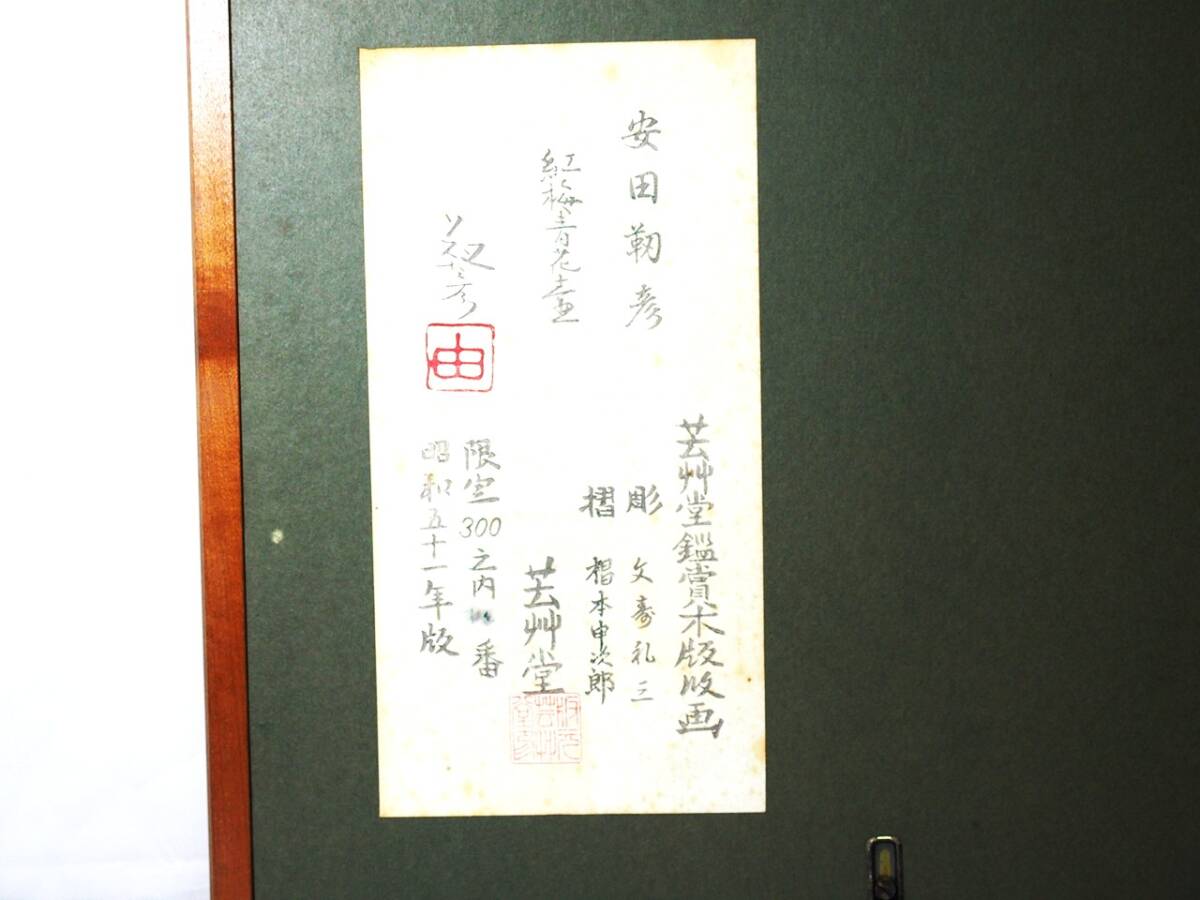 芸艸堂鑑賞木版版画
安田靭彦
彫 文寿礼三
摺 椙本申次郎
紅梅青花壷
芸艸堂
版元芸艸堂印
靫彦
由
限定300之内 番
昭和五十一年版